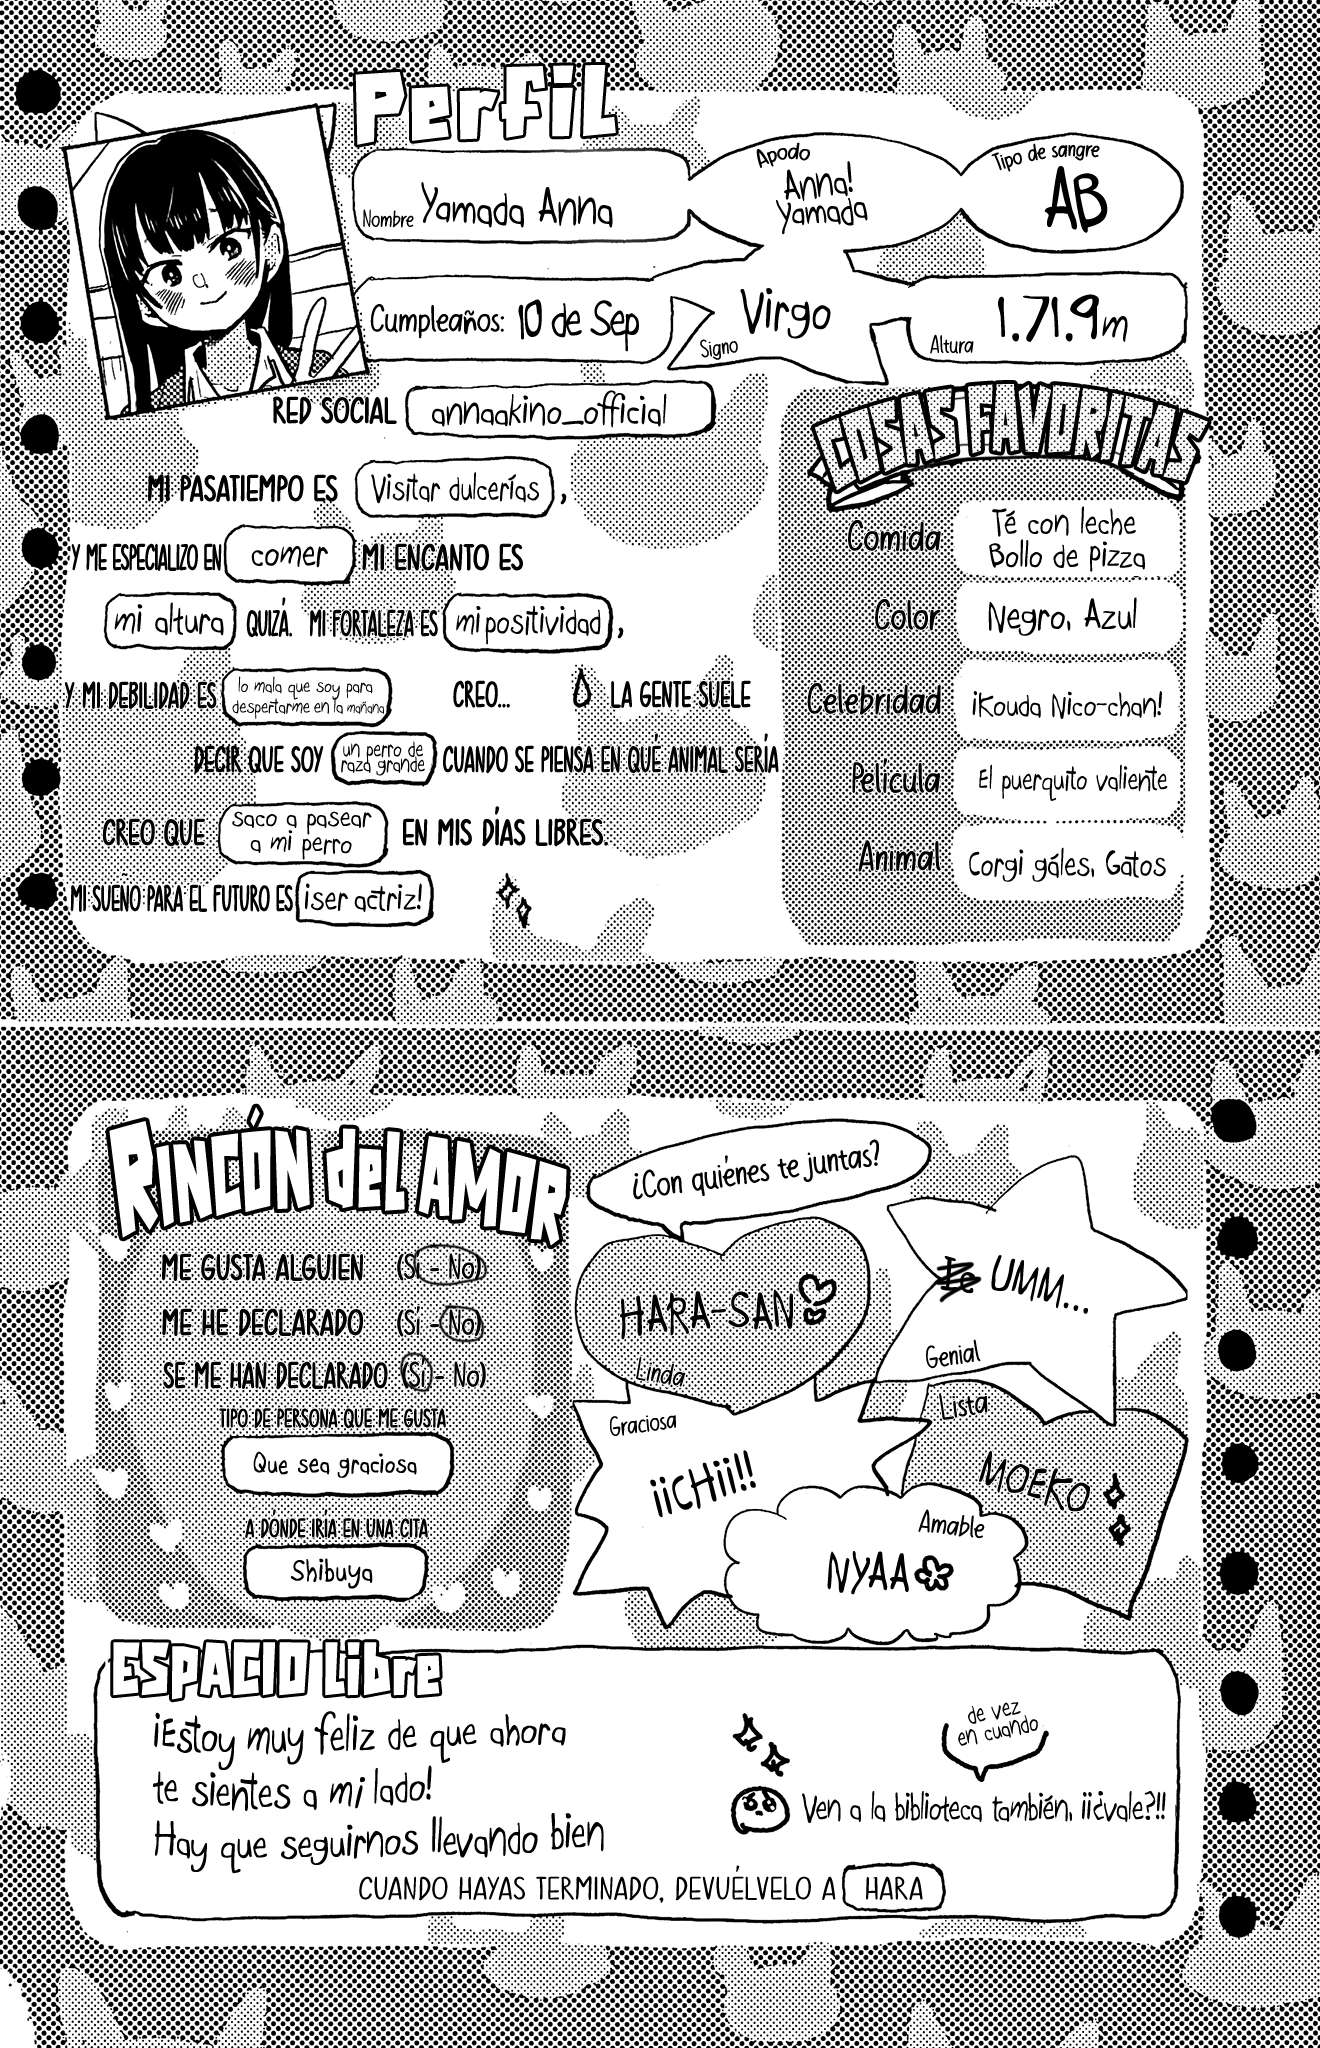 Perfil
Nombre Yamada Anna
Apodo
Anna!
Yamada
Tipo de sangre
AB
Cumpleaños: 10 de Sep
Virgo
Signo
1.71.9m
Altura
RED SOCIAL annaakino_official
MI PASATIEMPO ES Visitar dulcerías,
Y ME ESPECIALIZO EN comer MI ENCANTO ES
mi altura QUIZÁ. MI FORTALEZA ES mi positividad,
Y MI DEBILIDAD ES lo mala que soy para
despertarme en la mañana CREO... LA GENTE SUELE
DECIR QUE SOY un perro de
raza grande CUANDO SE PIENSA EN QUÉ ANIMAL SERÍA
CREO QUE saco a pasear
a mi perro EN MIS DÍAS LIBRES.
MI SUEÑO PARA EL FUTURO ES ¡ser actriz!
COSAS FAVORITAS
Comida
Té con leche
Bollo de pizza
Color Negro, Azul
Celebridad ¡Kouda Nico-chan!
Película El puerquito valiente
Animal Corgi gáles, Gatos
RINCÓN del AMOR
ME GUSTA ALGUIEN (Sí - No)
ME HE DECLARADO (Sí - No)
SE ME HAN DECLARADO (Sí - No)
TIPO DE PERSONA QUE ME GUSTA
Que sea graciosa
A DÓNDE IRIA EN UNA CITA
Shibuya
¿Con quiénes te juntas?
HARA-SAN
Linda
UMM...
Genial
Graciosa
¡¡CHii!!
Lista
MOEKO
Amable
NYAA
ESPACIO libre
¡Estoy muy feliz de que ahora
te sientes a mi lado!
Hay que seguirnos llevando bien
de vez
en cuando
Ven a la biblioteca también, ¡¡¿vale?!!
CUANDO HAYAS TERMINADO, DEVUÉLVELO A HARA